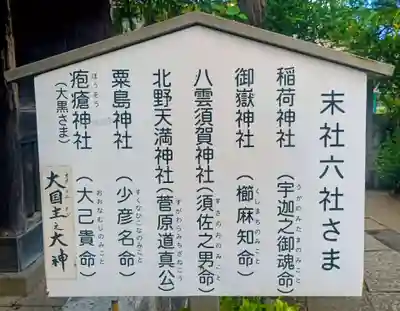 末社六社さま
稲荷神社（宇迦之御魂命）
うがのみたまのみこと
御嶽神社（櫛麻知命）
くしまちのみこと
八雲須賀神社（須佐之男命）
すさのおのみこと
北野天満神社（菅原道真公）
すがわらみちざねこう
粟島神社（少彦名命）
すくなひこなのみこと
疱瘡神社（大己貴命）
ほうそう
おおなむじのみこと
（大黒さま）
大国主之大神